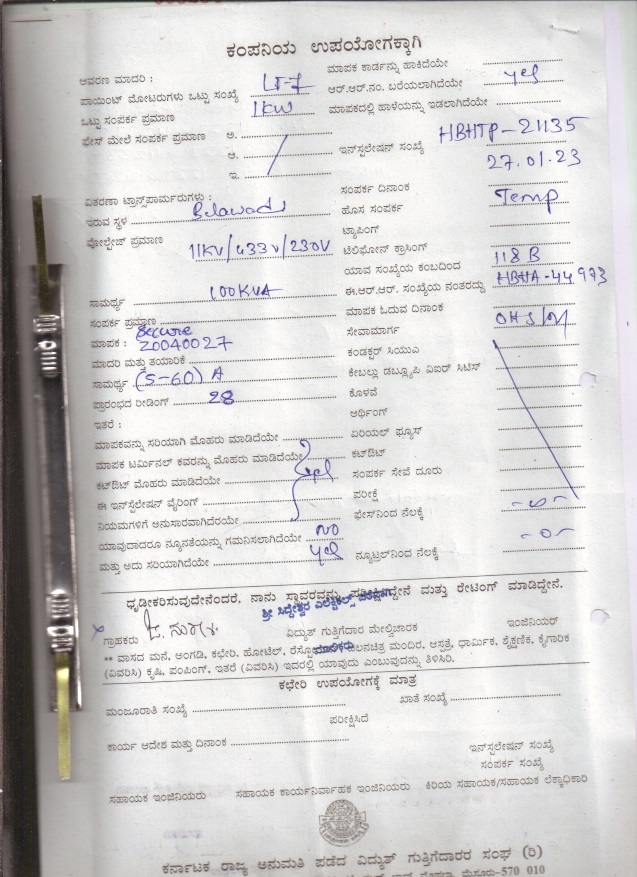 ಕಂಪನಿಯ ಉಪಯೋಗಕ್ಕಾಗಿ
ಆವರಣ ಮಾದರಿ :
ಪಾಯಿಂಟ್ ಮೋಟರುಗಳು ಒಟ್ಟು ಸಂಖ್ಯೆ LT-7
ಒಟ್ಟು ಸಂಪರ್ಕ ಪ್ರಮಾಣ 1KW
ಫೇಸ್ ಮೇಲೆ ಸಂಪರ್ಕ ಪ್ರಮಾಣ ಅ.
ಆ.
ಇ.
ವಿತರಣಾ ಟ್ರಾನ್ಸ್‌ಪಾರ್ಮರುಗಳು :
ಇರುವ ಸ್ಥಳ Belawadi
ವೋಲ್ಟೇಜ್ ಪ್ರಮಾಣ 11KV/433V/230V
ಸಾಮರ್ಥ್ಯ 100KVA
ಸಂಪರ್ಕ ಪ್ರಮಾಣ
ಮಾಪಕ : Secure 20040027
ಮಾದರಿ ಮತ್ತು ತಯಾರಿಕೆ
ಸಾಮರ್ಥ್ಯ (5-60) A
ಪ್ರಾರಂಭದ ರೀಡಿಂಗ್ 28
ಇತರೆ :
ಮಾಪಕವನ್ನು ಸರಿಯಾಗಿ ಮೊಹರು ಮಾಡಿದೆಯೇ
ಮಾಪಕ ಟರ್ಮಿನಲ್ ಕವರನ್ನು ಮೊಹರು ಮಾಡಿದೆಯೇ
ಕಟ್‌ಔಟ್ ಮೊಹರು ಮಾಡಿದೆಯೇ yes
ಈ ಇನ್‌ಸ್ಟೆಲೇಷನ್ ವೈರಿಂಗ್
ನಿಯಮಗಳಿಗೆ ಅನುಸಾರವಾಗಿದೆಯೇ
ಯಾವುದಾದರೂ ನ್ಯೂನತೆಯನ್ನು ಗಮನಿಸಲಾಗಿದೆಯೇ NO
ಮತ್ತು ಅದು ಸರಿಯಾಗಿದೆಯೇ yes
ಮಾಪಕ ಕಾರ್ಡನ್ನು ಹಾಕಿದೆಯೇ
ಆರ್.ಆರ್.ನಂ. ಬರೆಯಲಾಗಿದೆಯೇ yes
ಮಾಪಕದಲ್ಲಿ ಹಾಳೆಯನ್ನು ಇಡಲಾಗಿದೆಯೇ
ಇನ್‌ಸ್ಟಲೇಷನ್ ಸಂಖ್ಯೆ HBHTP-21135
ಸಂಪರ್ಕ ದಿನಾಂಕ 27.01.23
ಹೊಸ ಸಂಪರ್ಕ Temp
ಟ್ಯಾಪಿಂಗ್
ಟೆಲಿಫೋನ್ ಕ್ರಾಸಿಂಗ್
ಯಾವ ಸಂಖ್ಯೆಯ ಕಂಬದಿಂದ 118 B
ಈ.ಆರ್.ಆರ್. ಸಂಖ್ಯೆಯ ನಂತರದ್ದು HBHA-44973
ಮಾಪಕ ಓದುವ ದಿನಾಂಕ
ಸೇವಾಮಾರ್ಗ
ಕಂಡಕ್ಟರ್ ಸಿಯುಎ
ಕೇಬಲ್ಲು ಡಬ್ಲ್ಯೂಪಿ ವಿಐರ್ ಸಿಟಿಸ್
ಕೊಳವೆ
ಅರ್ಥಿಂಗ್
ಏರಿಯಲ್ ಫ್ಯೂಸ್
ಕಟ್‌ಔಟ್
ಸಂಪರ್ಕ ಸೇವೆ ದೂರು
ಪರೀಕ್ಷೆ
ಫೇಸ್‌ನಿಂದ ನೆಲಕ್ಕೆ
ನ್ಯೂಟ್ರಲ್‌ನಿಂದ ನೆಲಕ್ಕೆ -0-
ಧೃಡೀಕರಿಸುವುದೇನೆಂದರೆ, ನಾನು ಸ್ಥಾವರವನ್ನು ಪರೀಕ್ಷಿಸಿದ್ದೇನೆ ಮತ್ತು ರೇಟಿಂಗ್ ಮಾಡಿದ್ದೇನೆ.
ಶ್ರೀ ಸಿದ್ದೇಶ್ವರ ಎಲೆಕ್ಟ್ರಿಕಲ್ಸ್
ಗ್ರಾಹಕರು
ವಿದ್ಯುತ್ ಗುತ್ತಿಗೆದಾರ ಮೇಲ್ವಿಚಾರಕ
ಇಂಜಿನಿಯರ್
ಮಾಲಿಕರು
** ವಾಸದ ಮನೆ, ಅಂಗಡಿ, ಕಛೇರಿ, ಹೋಟೆಲ್, ಚಲನಚಿತ್ರ ಮಂದಿರ, ಆಸ್ಪತ್ರೆ, ಧಾರ್ಮಿಕ, ಶೈಕ್ಷಣಿಕ, ಕೈಗಾರಿಕೆ
(ವಿವರಿಸಿ) ಕೃಷಿ, ಪಂಪಿಂಗ್, ಇತರೆ (ವಿವರಿಸಿ) ಇದರಲ್ಲಿ ಯಾವುದು ಎಂಬುವುದನ್ನು ತಿಳಿಸಿರಿ.
ಕಛೇರಿ ಉಪಯೋಗಕ್ಕೆ ಮಾತ್ರ
ಮಂಜೂರಾತಿ ಸಂಖ್ಯೆ
ಖಾತೆ ಸಂಖ್ಯೆ
ಪರೀಕ್ಷಿಸಿದೆ
ಕಾರ್ಯ ಆದೇಶ ಮತ್ತು ದಿನಾಂಕ
ಇನ್‌ಸ್ಟಲೇಷನ್ ಸಂಖ್ಯೆ
ಸಂಪರ್ಕ ಸಂಖ್ಯೆ
ಸಹಾಯಕ ಇಂಜಿನಿಯರು ಸಹಾಯಕ ಕಾರ್ಯನಿರ್ವಾಹಕ ಇಂಜಿನಿಯರು ಕಿರಿಯ ಸಹಾಯಕ/ಸಹಾಯಕ ಲೆಕ್ಕಾಧಿಕಾರಿ
ಕರ್ನಾಟಕ ರಾಜ್ಯ ಅನುಮತಿ ಪಡೆದ ವಿದ್ಯುತ್ ಗುತ್ತಿಗೆದಾರರ ಸಂಘ (ರಿ)
ಮೈಸೂರು-570 010